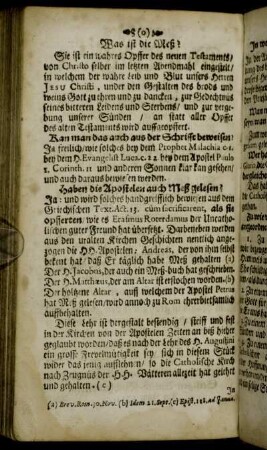 (o)
Was ist die Meß?
Sie ist ein wahres Opffer des neuen Testaments/
von Christo selber im letzten Abendmahl eingesetzt/
in welchem der wahre Leib und Blut unsers Herren
JESU Christi, under den Gestalten des brods und
weins Gott zu ehren und zu dancken, zur Gedächtnus
seines bitteren Leidens und Sterbens/ und zur verge-
bung unserer Sünden/ an statt aller Opffer
des alten Testaments wird auffgeopffert.
Kan man das auch aus der Schrifft beweisen?
Ja freilich/ wie solches bey dem Prophet Malachia c. 1.
bey dem H. Evangelist Luca c. 22 bey dem Apostel Paulo
1. Corinth. 11 und anderen Sonnen klar kan gesehen/
und auch daraus bewisen werden.
Haben die Apostelen auch Meß gelesen?
Ja: und wird solches handgreifflich bewisen aus dem
Griechischen Text. Act. 13. cùm sacrificarent, als sie
opfferten: wie es Erasmus Roterdamus der Uncatho-
lischen guter Freund hat übersetzt. Darbeneben werden
aus den uralten Kirchen Geschichten nemlich ange-
zogen die HH. Apostelen: Andreas, der von ihm selbst
bekent hat/ daß Er täglich habe Meß gehalten (a)
Der H. Jacobus, der auch ein Meß-buch hat geschrieben.
Der H. Matthæus, der am Altar ist erstochen worden. (b)
Der holzene Altar, auff welchem der Apostel Petrus
hat Meß gelesen/ wird annoch zu Rom ehrerbietsamlich
auffbehalten.
Diese Lehr ist dergestalt beständig/ steiff und fest
in der Kirchen von der Apostelen Zeiten an biß hieher
geglaubt worden/ daß es nach der Lehr des H. Augustini
ein grosse Frevelmütigkeit sey sich in diesem Stuck
wider das jenig auffleinen/ so die Catholische Kirch
nach Zeugnus der HH. Vätteren allezeit hat gelehrt
und gehalten. (c)
Ja
(a) Brev. Rom. 30. Nov. (b) Idem 21. Sept. (c) Epist. 118. ad Januar.